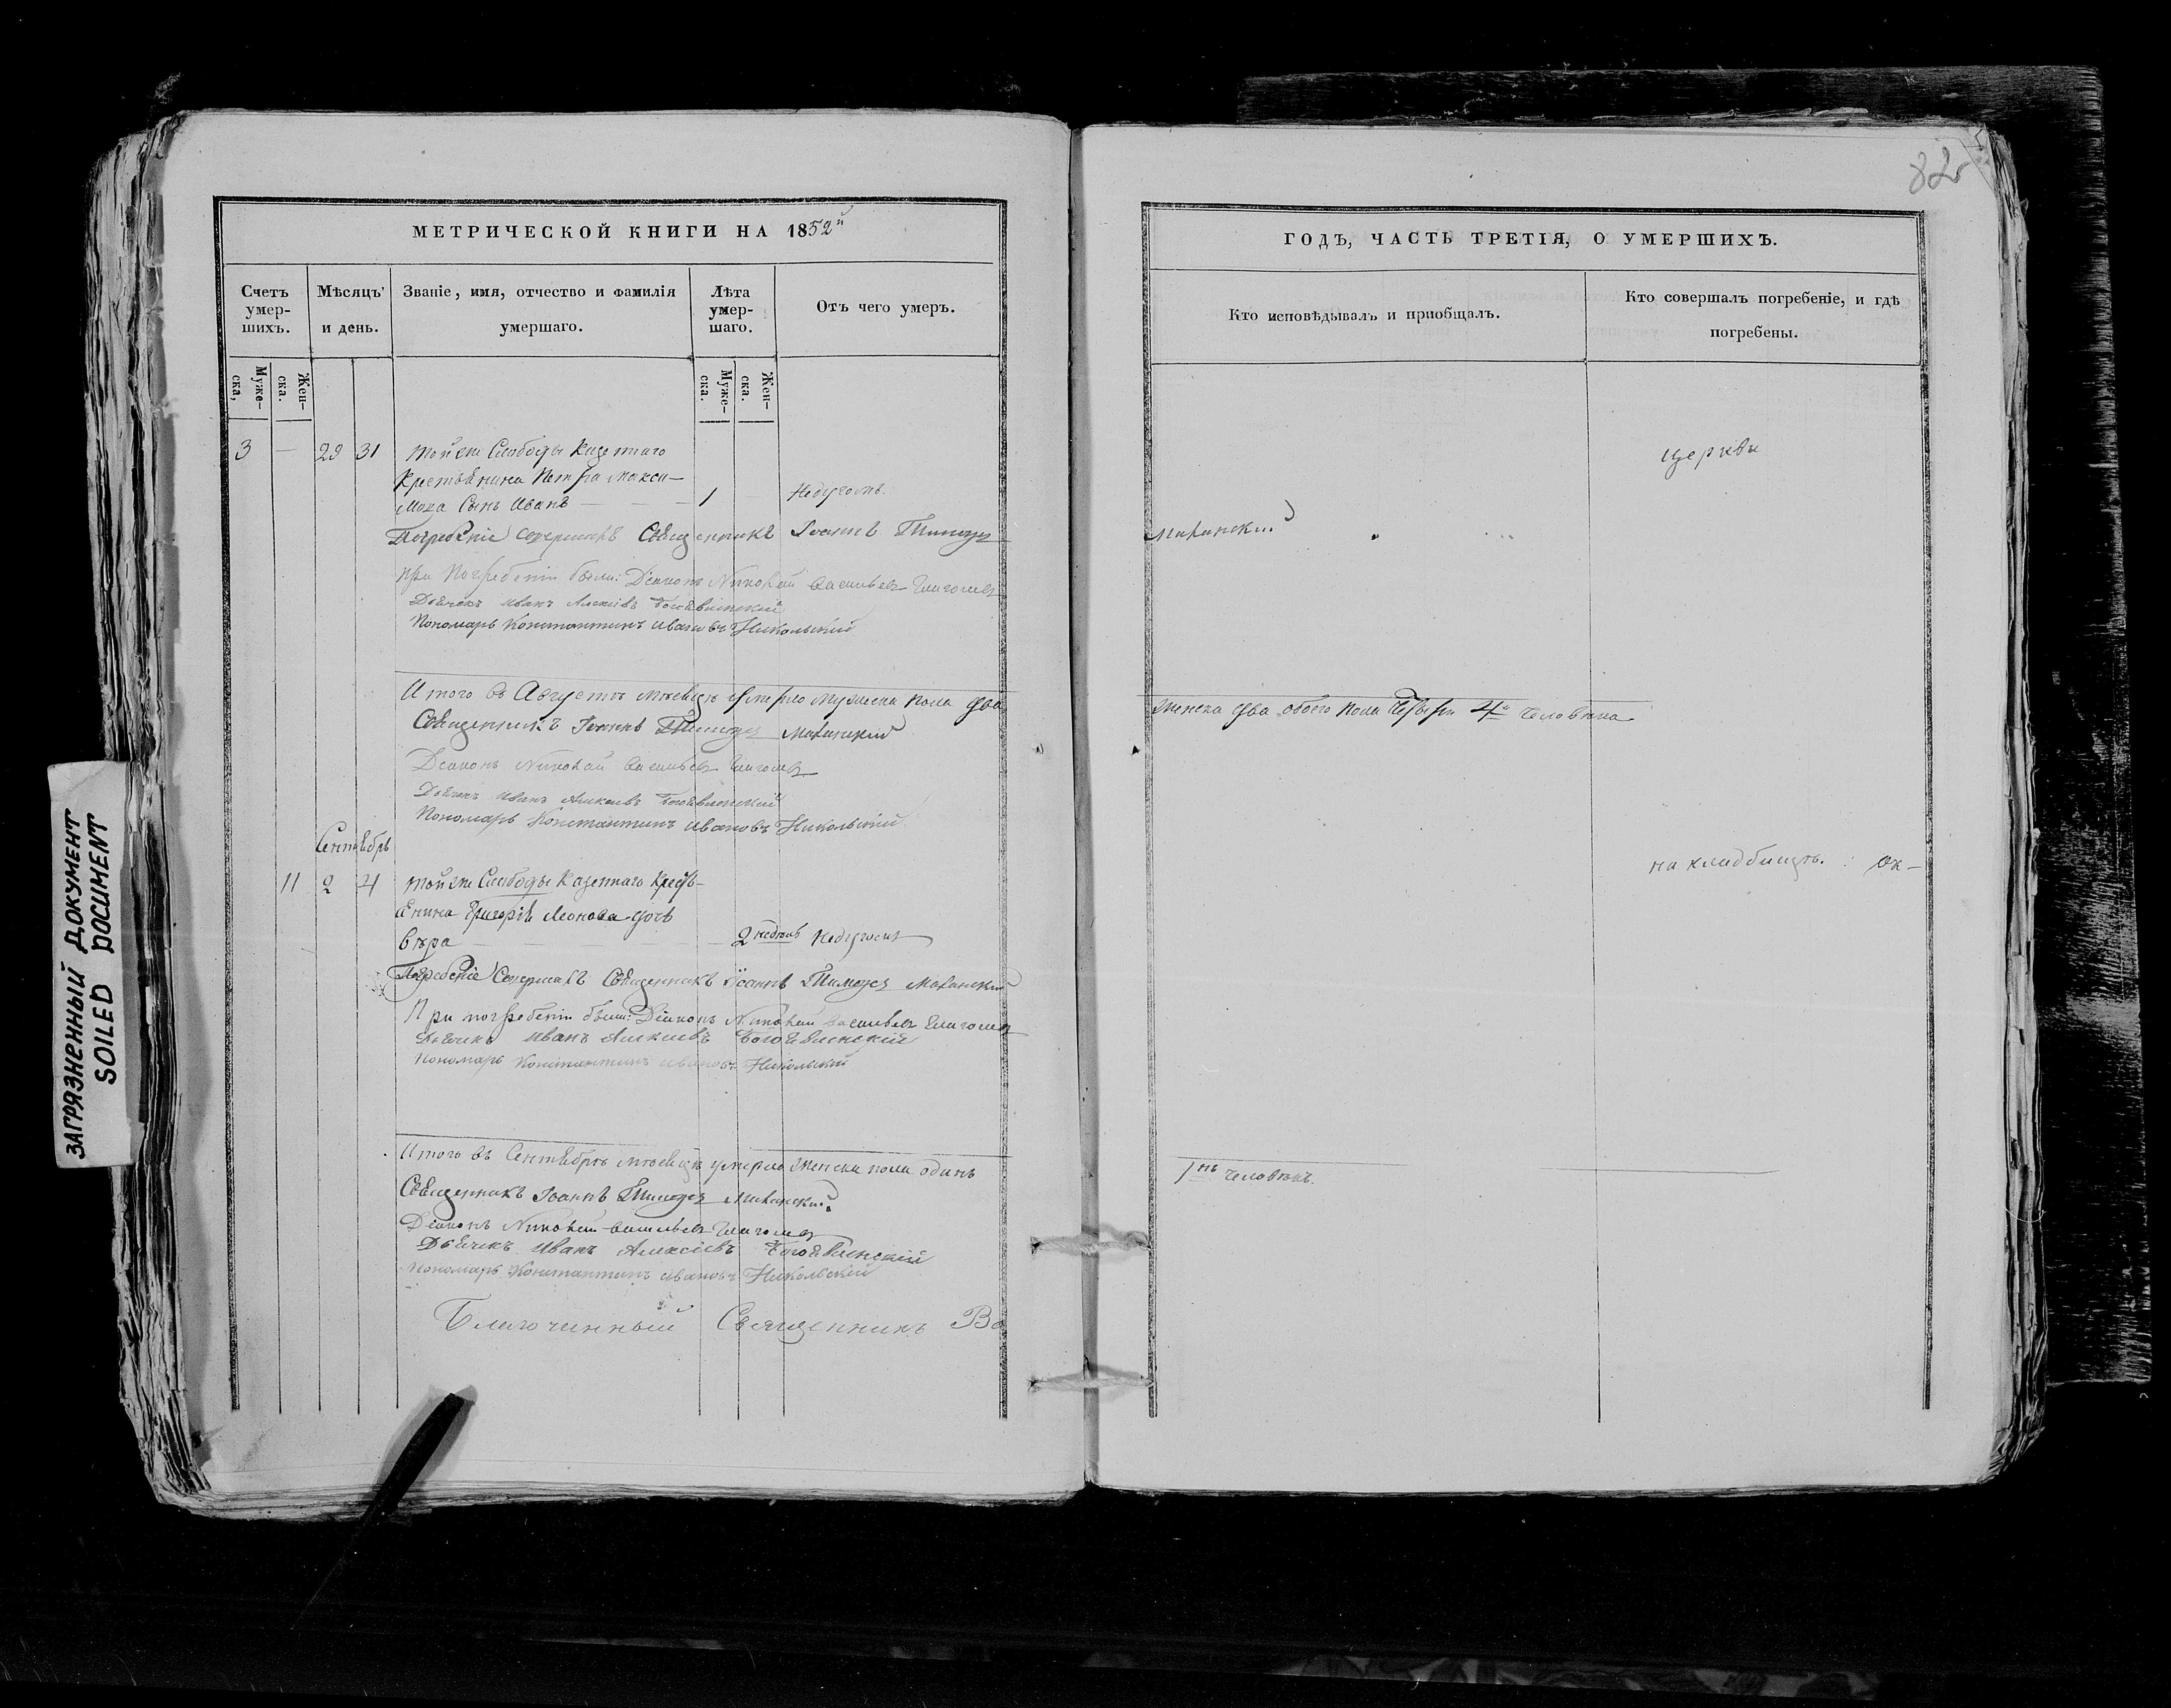 82
МЕТРИЧЕСКОЙ КНИГИ НА 1852й
Счетъ умер-шихъ.
Мѣсяцъ и день.
Званіе, имя, отчество и фамилія умершаго.
Лѣта умер-шаго.
Отъ чего умеръ.
Муже-ска,
Жен-ска.
Муже-ска.
Жен-ска.
3 — 29 31 той же Слободы Казеннаго
Крестьянина Петра Макси-
мова Сынъ Иванъ — — — 1 — Недугомъ.
Погребеніе совершалъ Священникъ Іоаннъ
При Погребеніи были: Діаконъ Николай Васильевъ Глаголевъ
Дьячекъ Иванъ Алексіевъ Богоявленскій
Пономарь Константинъ Ивановъ Никольскій
Итого въ Августѣ мѣсяцѣ умерло мужеска пола два
Священникъ Іоаннъ
Діаконъ Николай Васильевъ Глаголевъ
Дьячекъ Иванъ Алексіевъ Богоявленскій
Пономарь Константинъ Ивановъ Никольскій
Сентябрь
11 2 4 той же Слободы Казеннаго Кресть-
янина Григорія Леонова дочь
Вѣра — — — — 2 недѣль Недугомъ
Погребеніе Совершалъ Священникъ Іоаннъ
При погребеніи были: Діаконъ Николай Васильевъ Глаголевъ
Дьячекъ Иванъ Алексіевъ Богоявленскій
Пономарь Константинъ Ивановъ Никольскій
Итого въ Сентябрѣ мѣсяцѣ умерло женска пола одинъ
Священникъ Іоаннъ
Діаконъ Николай Васильевъ Глаголевъ
Дьячекъ Иванъ Алексіевъ Богоявленскій
Пономарь Константинъ Ивановъ Никольскій
Благочинный Священникъ Ва
ГОДЪ, ЧАСТЬ ТРЕТІЯ, О УМЕРШИХЪ.
Кто исповѣдывалъ и пріобщалъ.
Кто совершалъ погребеніе, и гдѣ погребены.
церкви
женска два обоего пола четыре 4 человѣка
на кладбищѣ. ок-
1нъ человѣкъ.
ЗАГРЯЗНЕННЫЙ ДОКУМЕНТ
SOILED DOCUMENT